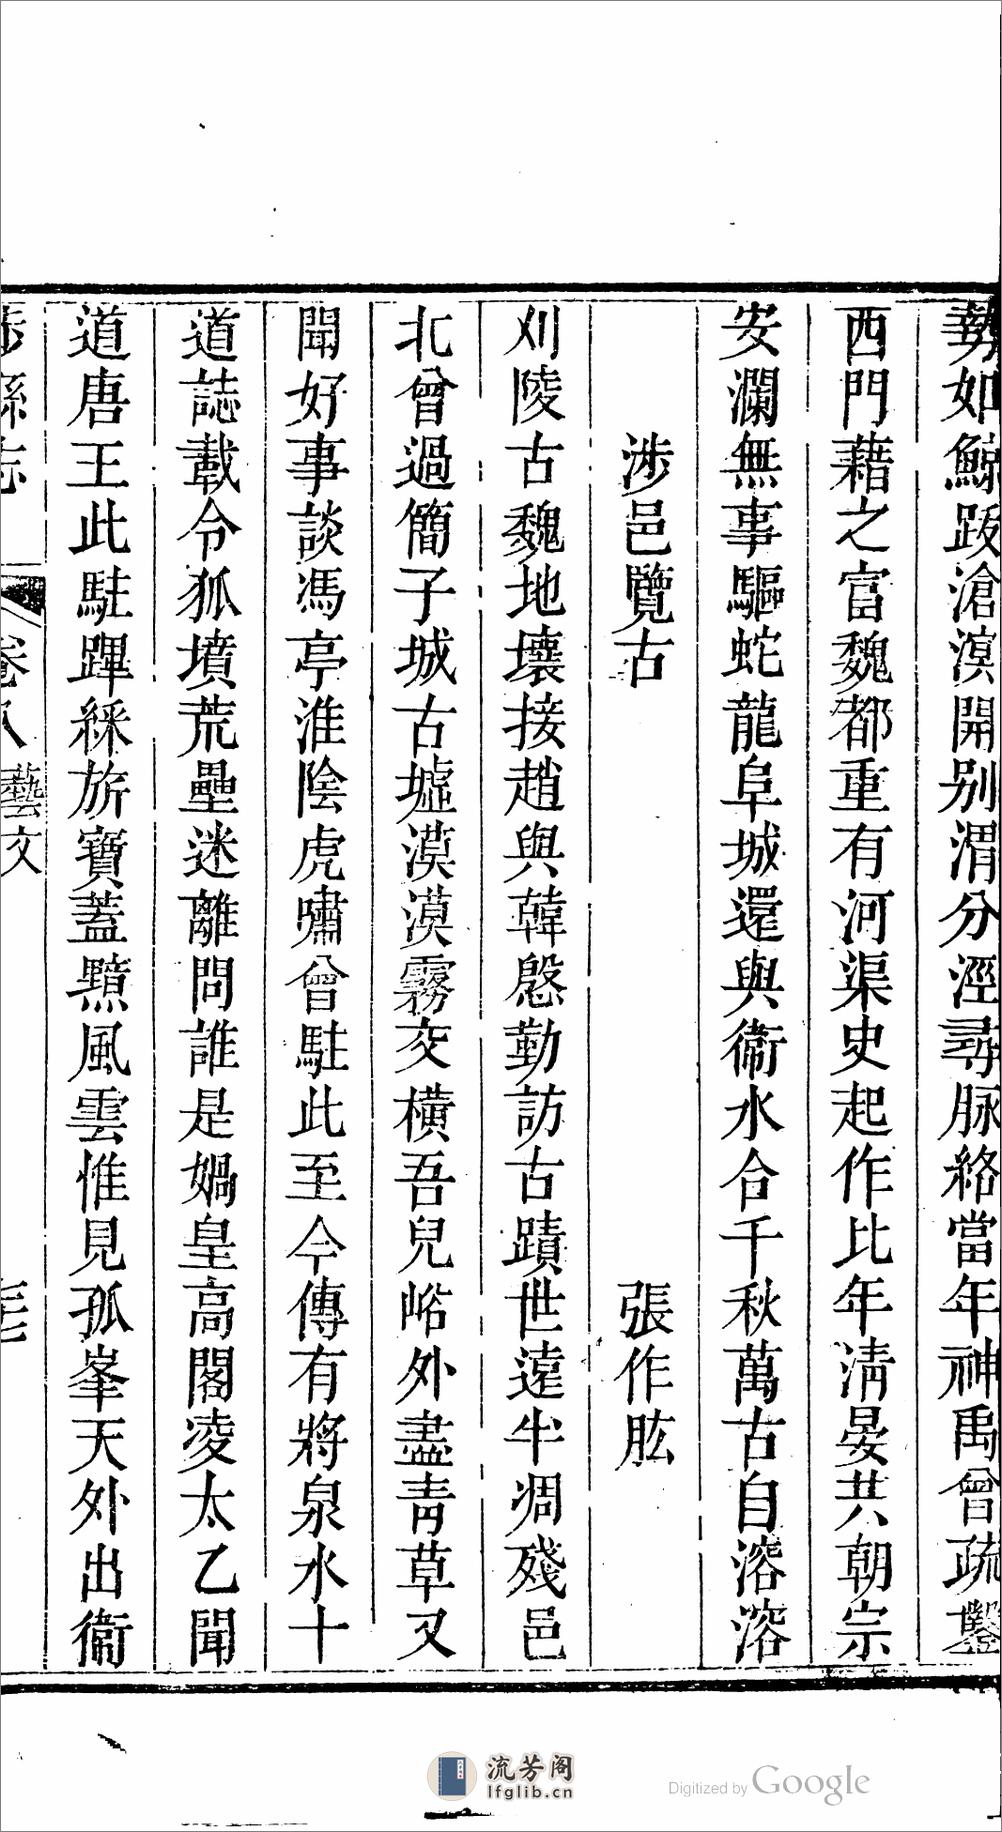 勢如鯨跋滄溟開别渭分涇尋脉絡當年神禹曾疏鑿
西門藉之富魏都重有河渠史起作比年淸晏共朝宗
安瀾無事驅蛇龍阜城還與衞水合千秋萬古自溶溶
涉邑覽古 張作肱
刈陵古魏地壤接趙與韓慇勤訪古蹟世遠半凋殘邑
北曾過簡子城古墟漠漠霧交橫吾兒峪外盡靑草又
聞好事談馮亭淮陰虎嘯曾駐此至今傳有將泉水十
道誌載令狐墳荒壘迷離問誰是媧皇高閣凌太乙聞
道唐王此駐蹕綵旂寶蓋黯風雲惟見孤峯天外出衞
涉縣志 卷八 藝文
流芳阁
lfglib.cn
Digitized by Google